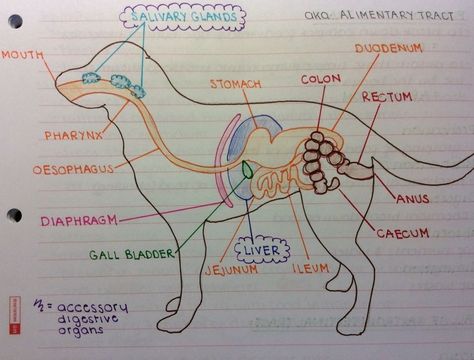 AKA: ALIMENTARY TRACT
SALIVARY GLANDS
MOUTH
DUODENUM
STOMACH
COLON
RECTUM
PHARYNX
OESOPHAGUS
DIAPHRAGM
ANUS
GALL BLADDER
LIVER
CAECUM
JEJUNUM
ILEUM
= accessory
digestive
organs